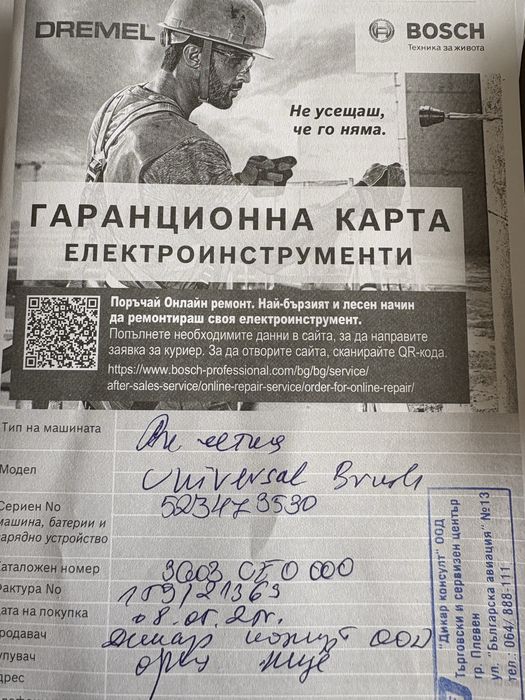 DREMEL
BOSCH
Техника за живота
Не усещаш,
че го няма.
ГАРАНЦИОННА КАРТА
ЕЛЕКТРОИНСТРУМЕНТИ
Поръчай Онлайн ремонт. Най-бързият и лесен начин
да ремонтираш своя електроинструмент.
Попълнете необходимите данни в сайта, за да направите
заявка за куриер. За да отворите сайта, сканирайте QR-кода.
https://www.bosch-professional.com/bg/bg/service/
after-sales-service/online-repair-service/order-for-online-repair/
Тип на машината
Модел Universal Brush
Сериен No 523473530
машина, батерии и
зарядно устройство
Каталожен номер 3603 CE0 000
Фактура No
Дата на покупка
Продавач Дикар консулт ООД
Купувач
Адрес
"Дикар консулт" ООД
Търговски и сервизен център
гр. Плевен
ул. "Българска авиация" №13
тел.: 064/ 888-111